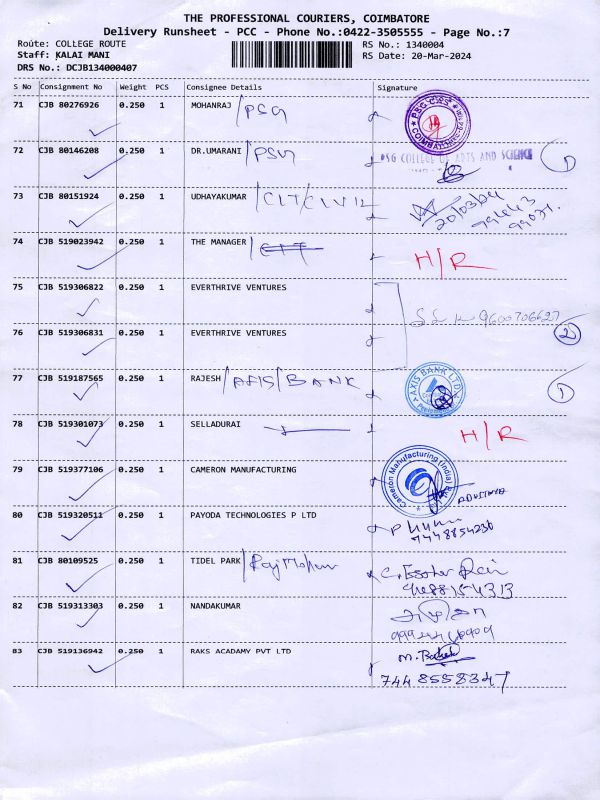 THE PROFESSIONAL COURIERS, COIMBATORE
Delivery Runsheet - PCC - Phone No.:0422-3505555 - Page No.:7
Route: COLLEGE ROUTE
Staff: KALAI MANI
DRS No.: DCJB134000407
RS No.: 1340004
RS Date: 20-Mar-2024
S No Consignment No Weight PCS Consignee Details Signature
71 CJB 80276926 0.250 1 MOHANRAJ /PSG
PSG CAS COIMBATORE
72 CJB 80146208 0.250 1 DR.UMARANI /PSG PSG COLLEGE OF ARTS AND SCIENCE 1
73 CJB 80151924 0.250 1 UDHAYAKUMAR /CIT/CIVIL 20/03/24
74 CJB 519023942 0.250 1 THE MANAGER /CIT H/R
75 CJB 519306822 0.250 1 EVERTHRIVE VENTURES
9600706627
76 CJB 519306831 0.250 1 EVERTHRIVE VENTURES 2
77 CJB 519187565 0.250 1 RAJESH /AXIS/BANK AXIS BANK LTD 1
78 CJB 519301073 0.250 1 SELLADURAI H/R
79 CJB 519377106 0.250 1 CAMERON MANUFACTURING Cameron Manufacturing (India)
80 CJB 519320511 0.250 1 PAYODA TECHNOLOGIES P LTD
7448854236
81 CJB 80109525 0.250 1 TIDEL PARK /Raj Mohan
82 CJB 519313303 0.250 1 NANDAKUMAR
83 CJB 519136942 0.250 1 RAKS ACADAMY PVT LTD
7448558347